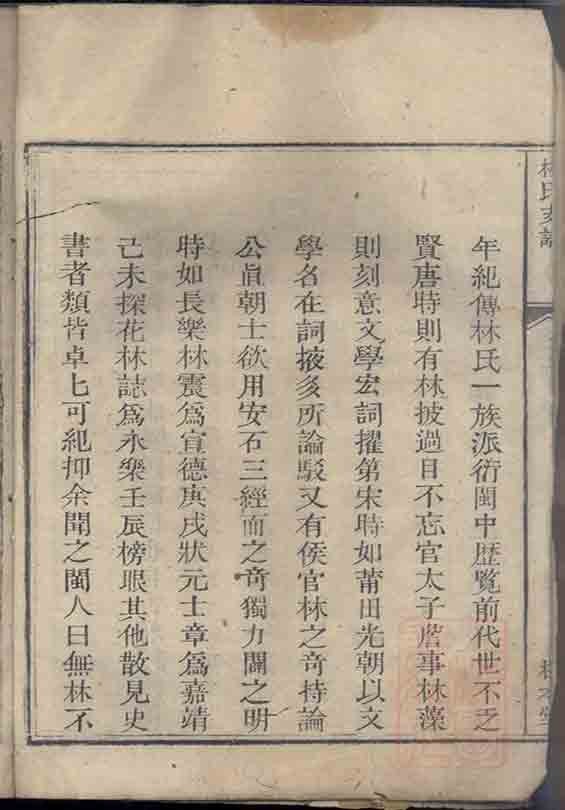 林氏支譜
年紀傳林氏一族派衍閩中歷覽前代世不乏
賢唐時則有林披過目不忘官太子詹事林藻
則刻意文學宏詞擢第宋時如莆田光朝以文
學名在詞掖多所論駁又有侯官林之奇持論
公眞朝士欲用安石三經而之奇獨力闢之明
時如長樂林震爲宣德庚戌狀元士章爲嘉靖
己未探花林誌爲永樂壬辰榜眼其他散見史
書者類皆卓匕可紀抑余聞之閩人曰無林不